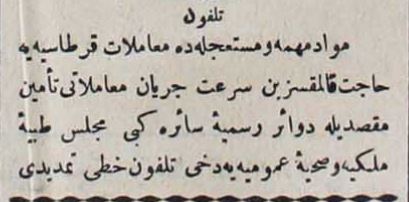 تلفون
مواد مهمه و مستعجله‌ده معاملات قرطاسیه‌یه
حاجت قالمقسزین سرعت جریان معاملاتی تأمین
مقصدیله دوائر رسمیهٔ سائره کبی مجلس طبیهٔ
ملکیه و صحیهٔ عمومیه‌یه دخی تلفون خطی تمدیدی